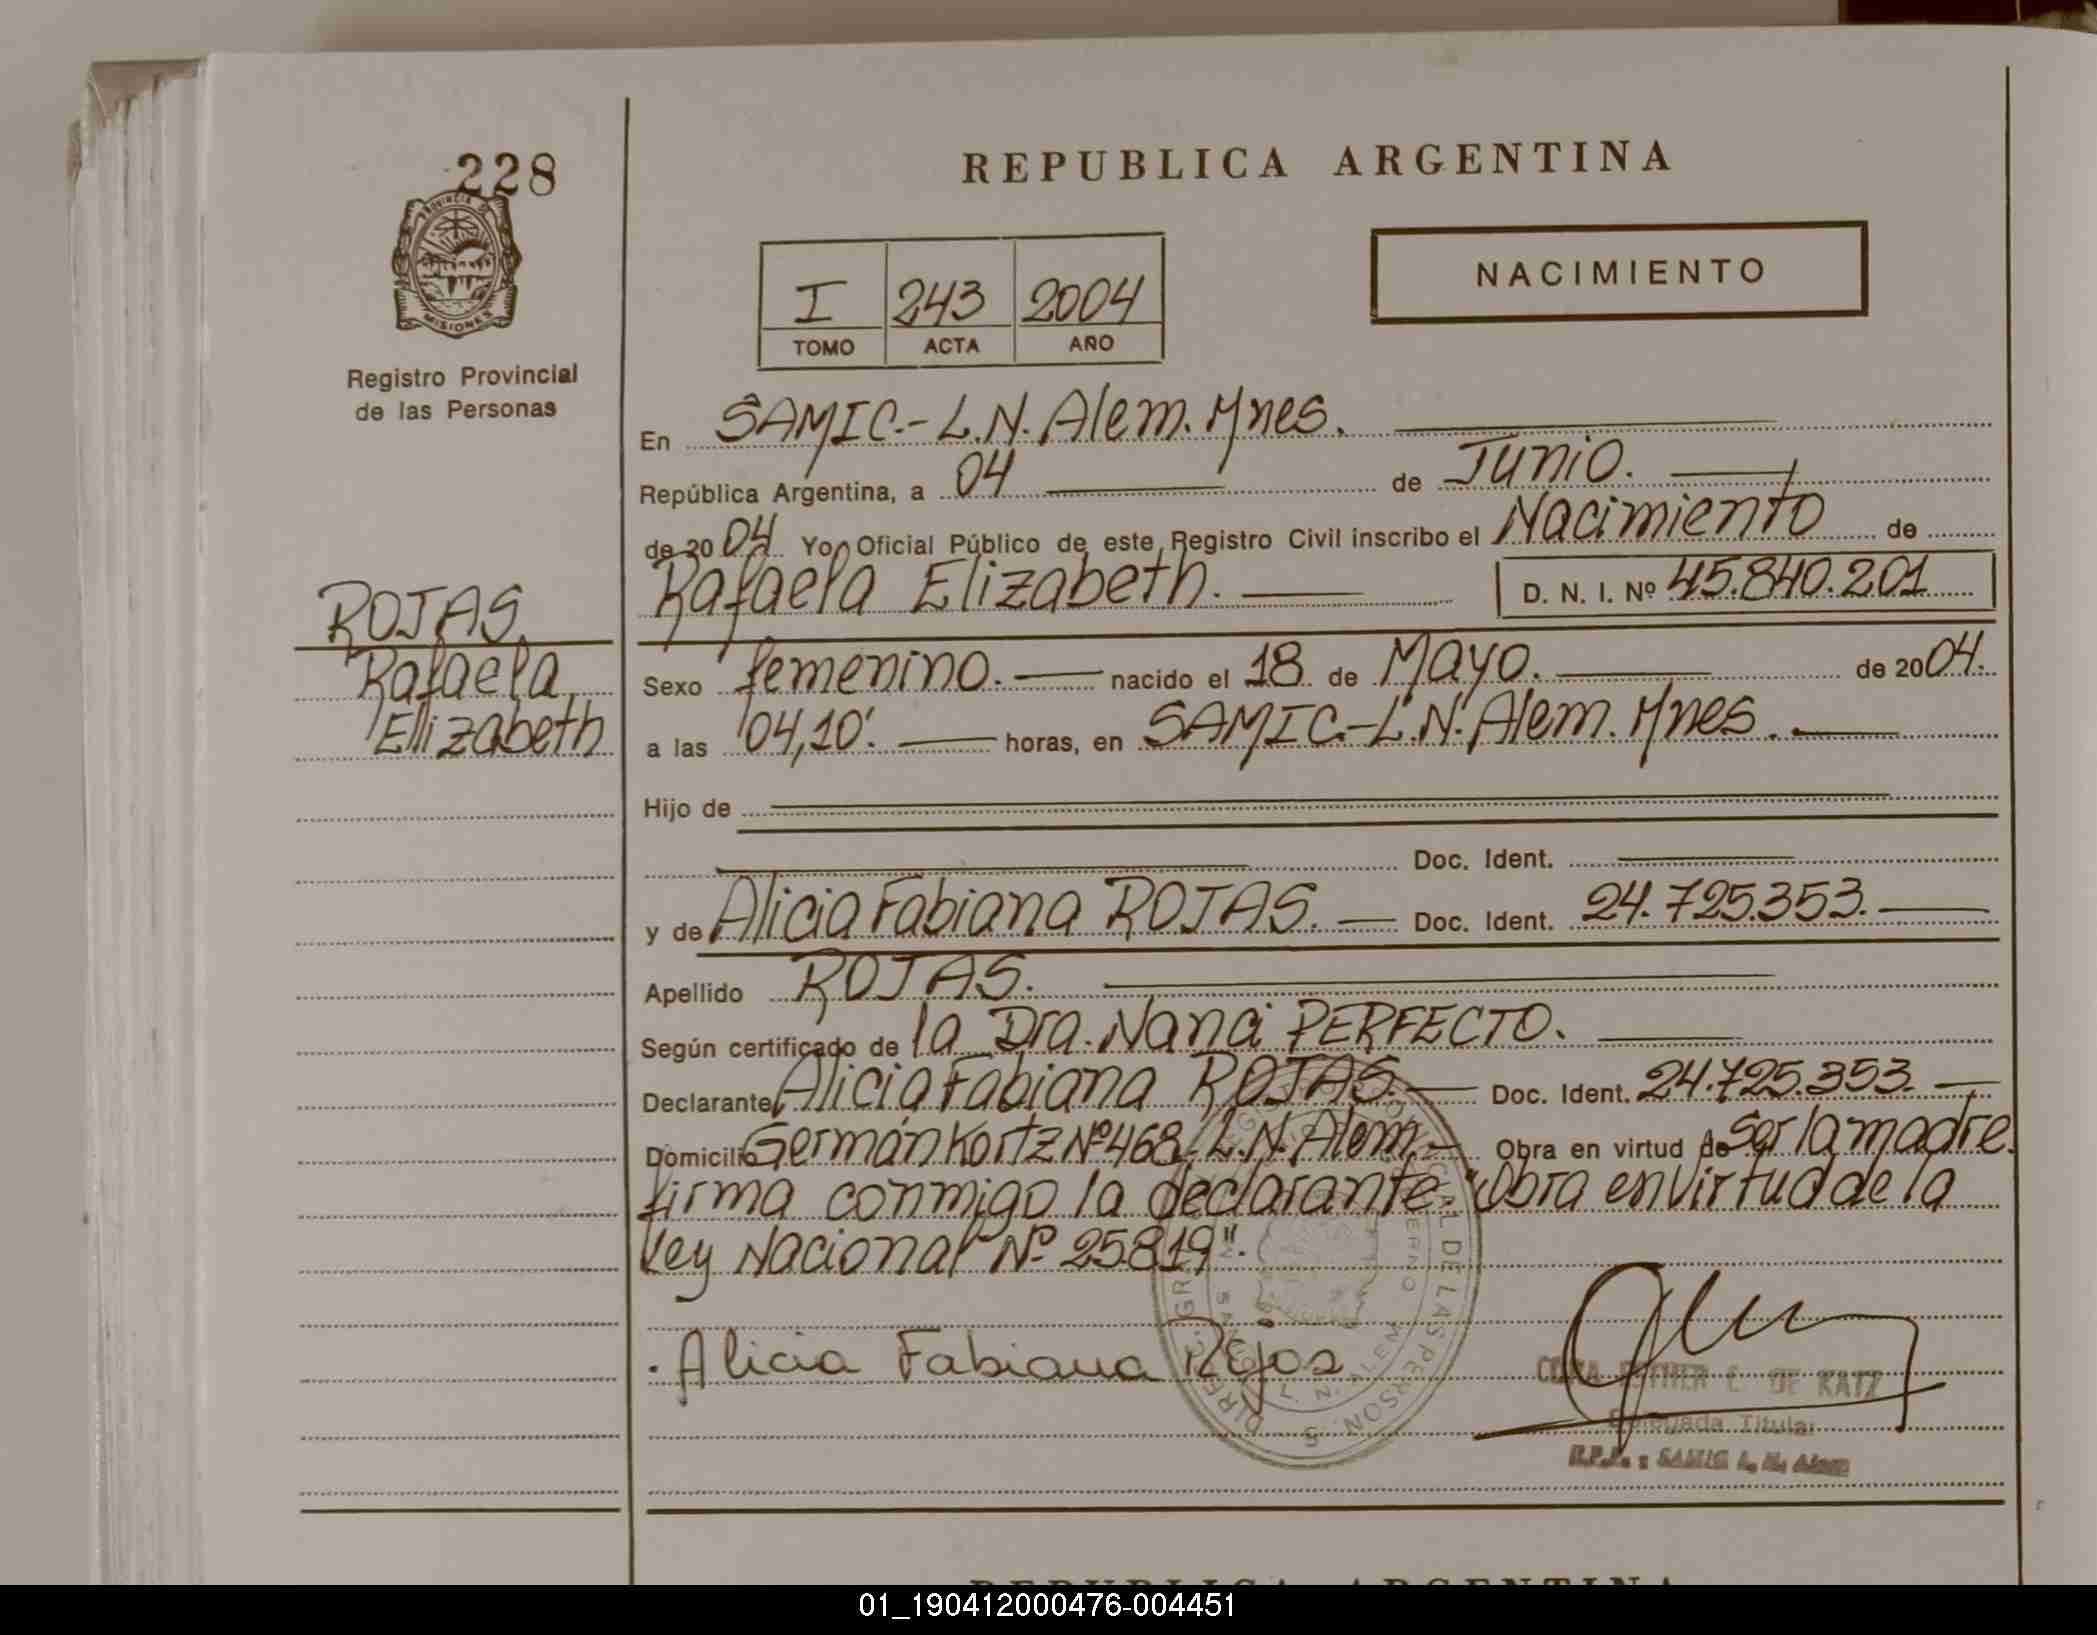 228
PROVINCIA DE
MISIONES
Registro Provincial
de las Personas
REPUBLICA ARGENTINA
I 243 2004
TOMO ACTA AÑO
NACIMIENTO
En SAMIC.-L.N.Alem.Mnes.
República Argentina, a 04 de Junio.
de 2004 Yo, Oficial Público de este Registro Civil inscribo el Nacimiento de
Rafaela Elizabeth. D. N. I. Nº 45.840.201
ROJAS
Rafaela
Elizabeth
Sexo femenino. nacido el 18 de Mayo. de 2004.
a las 04,10'. horas, en SAMIC.-L.N.Alem.Mnes.
Hijo de
Doc. Ident.
y de Alicia Fabiana ROJAS. Doc. Ident. 24.725.353.
Apellido ROJAS.
Según certificado de la Dra. Nanci PERFECTO.
Declarante Alicia Fabiana ROJAS. Doc. Ident. 24.725.353.
Domicilio Germán Kortz Nº 468, L.N.Alem.- Obra en virtud de Ser la madre.
firma conmigo la declarante "Obra en virtud de la
Ley Nacional Nº 25819".
Alicia Fabiana Rojas
DE KATZ
Delegada Titular
R.P.P. : SAMIC L. N. Alem
REPUBLICA ARGENTINA
01_190412000476-004451